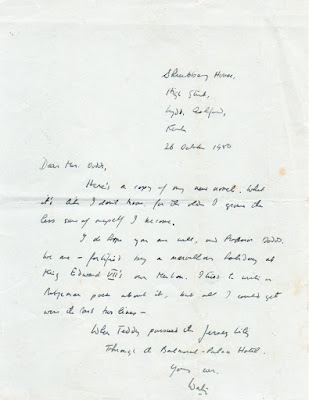 Shrubbery House,
High Street,
Lydd, Ashford,
Kent.
26 October 1980
Dear Mrs.
Here's a copy of my new novel. What
it's like I don't know, for the older I grow the
less sure of myself I become.
I do hope you are well, and Professor
We are - fortified by a marvellous holiday at
King Edward VII's own I tried to write a
Betjeman poem about it, but all I could get
were the last two lines -
When Teddy pursued the Jersey Lily
Through the Balmoral- Hotel.
Yours ever,